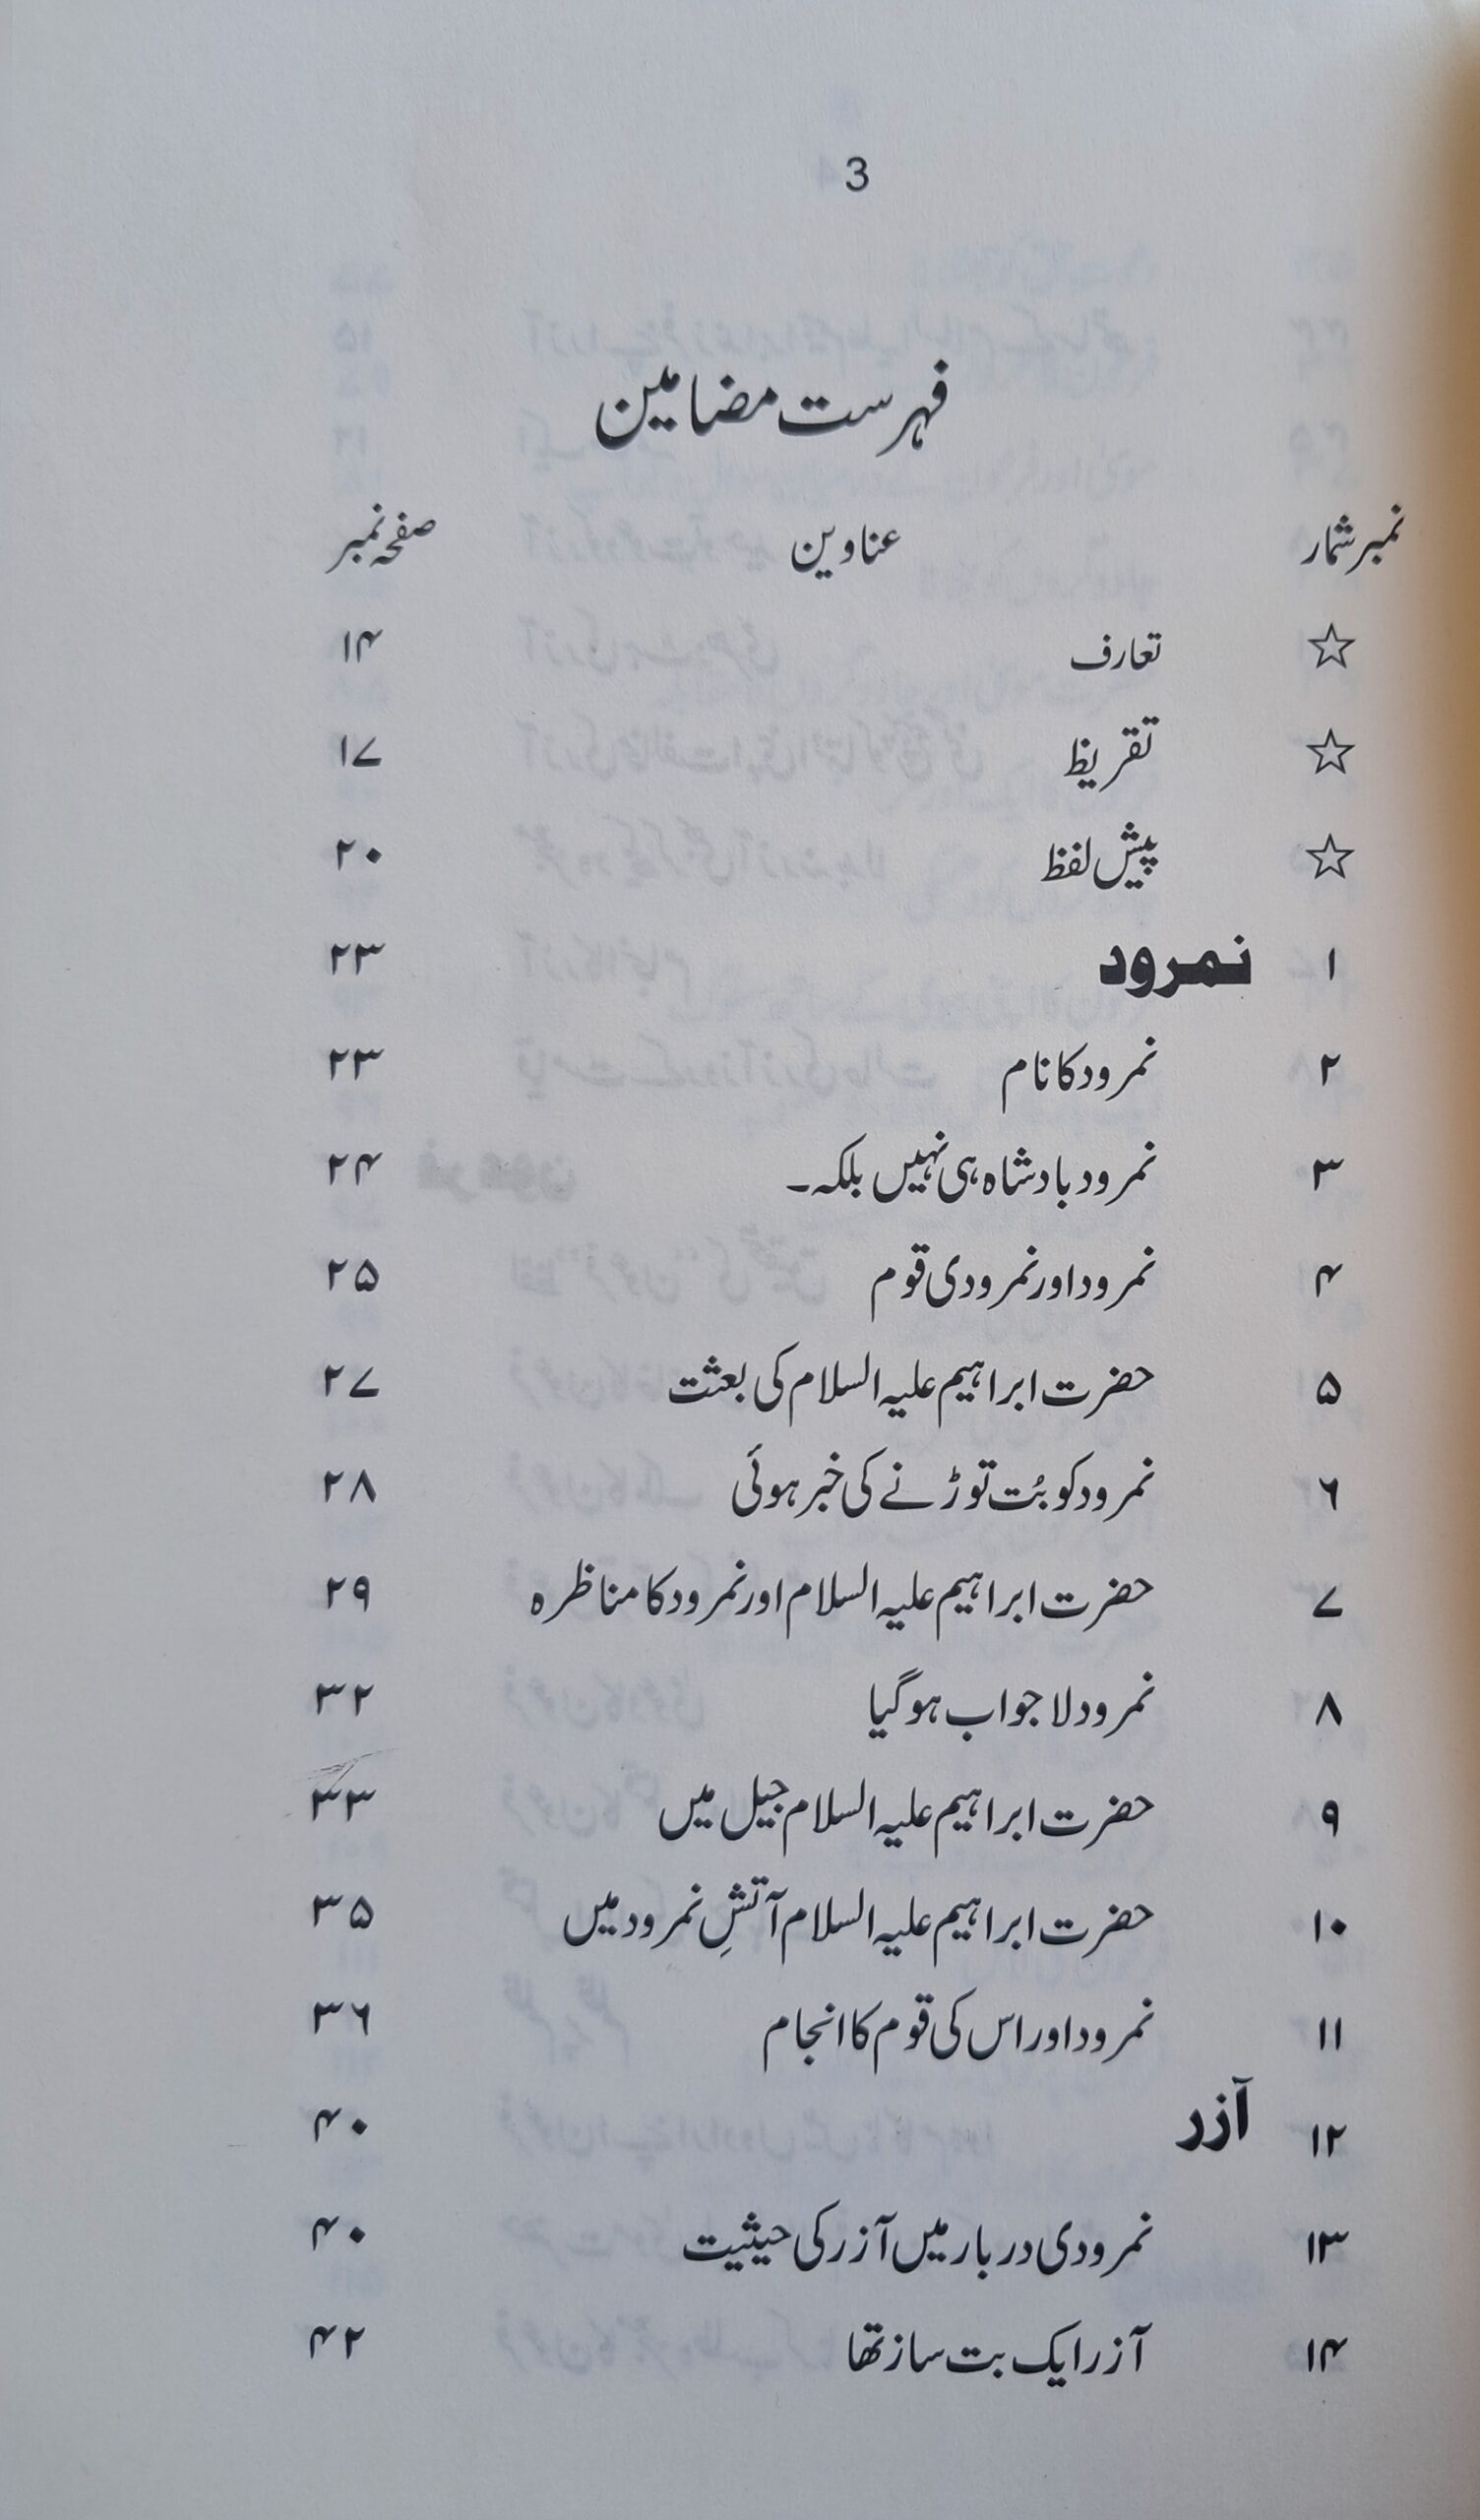 3
فہرست مضامین
نمبر شمار عناوین صفحہ نمبر
☆ تعارف ۱۴
☆ تقریظ ۱۷
☆ پیش لفظ ۲۰
۱ نمرود ۲۳
۲ نمرود کا نام ۲۳
۳ نمرود بادشاہ ہی نہیں بلکہ۔ ۲۴
۴ نمرود اور نمرودی قوم ۲۵
۵ حضرت ابراہیم علیہ السلام کی بعثت ۲۷
۶ نمرود کو بُت توڑنے کی خبر ہوئی ۲۸
۷ حضرت ابراہیم علیہ السلام اور نمرود کا مناظرہ ۲۹
۸ نمرود لا جواب ہو گیا ۳۲
۹ حضرت ابراہیم علیہ السلام جیل میں ۳۳
۱۰ حضرت ابراہیم علیہ السلام آتشِ نمرود میں ۳۵
۱۱ نمرود اور اس کی قوم کا انجام ۳۶
۱۲ آزر ۴۰
۱۳ نمرودی دربار میں آزر کی حیثیت ۴۰
۱۴ آزر ایک بت ساز تھا ۴۲